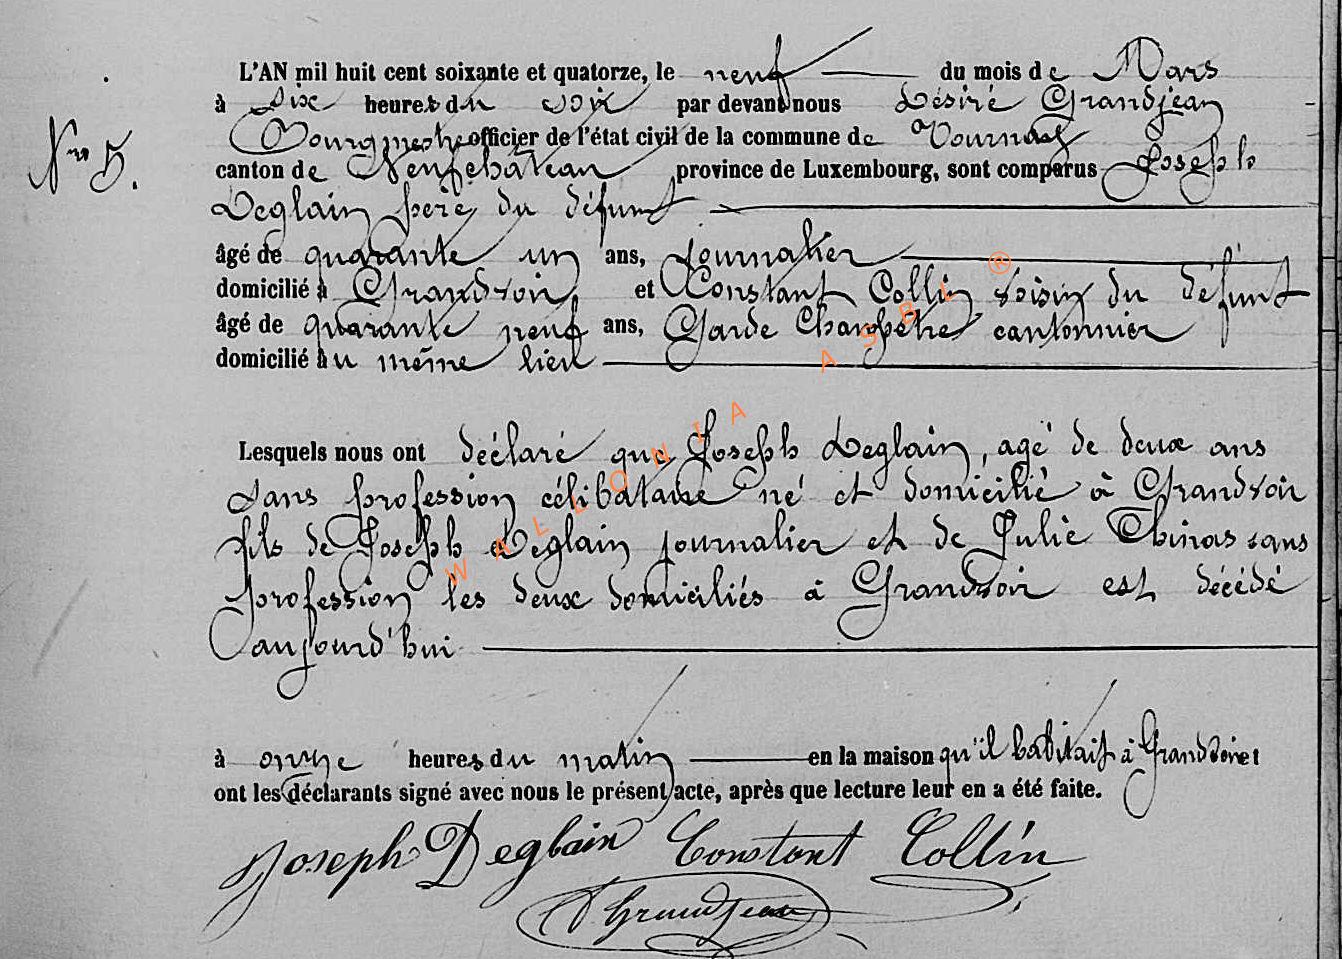 L'AN mil huit cent soixante et quatorze, le neuf du mois de Mars
à six heures du soir par devant nous Désiré Grandjean
Nro 5.
Bourgmestre officier de l'état civil de la commune de Tournay
canton de Neufchâteau province de Luxembourg, sont comparus Joseph
Deglain père du défunt
âgé de quarante un ans, journalier
domicilié à Grandvoir et Constant Collin voisin du défunt
âgé de quarante neuf ans, Garde Champêtre cantonnier
domicilié au même lieu
Lesquels nous ont déclaré que Joseph Deglain, agé de deux ans
sans profession célibataire né et domicilié à Grandvoir
fils de Joseph Deglain journalier et de Julie Thiras sans
profession les deux domiciliés à Grandvoir est décédé
aujourd'hui
à onze heures du matin en la maison qu'il habitait à Grandvoir et
ont les déclarants signé avec nous le présent acte, après que lecture leur en a été faite.
Joseph Deglain Constant Collin
D Grandjean
WALLONIA ASBL ®